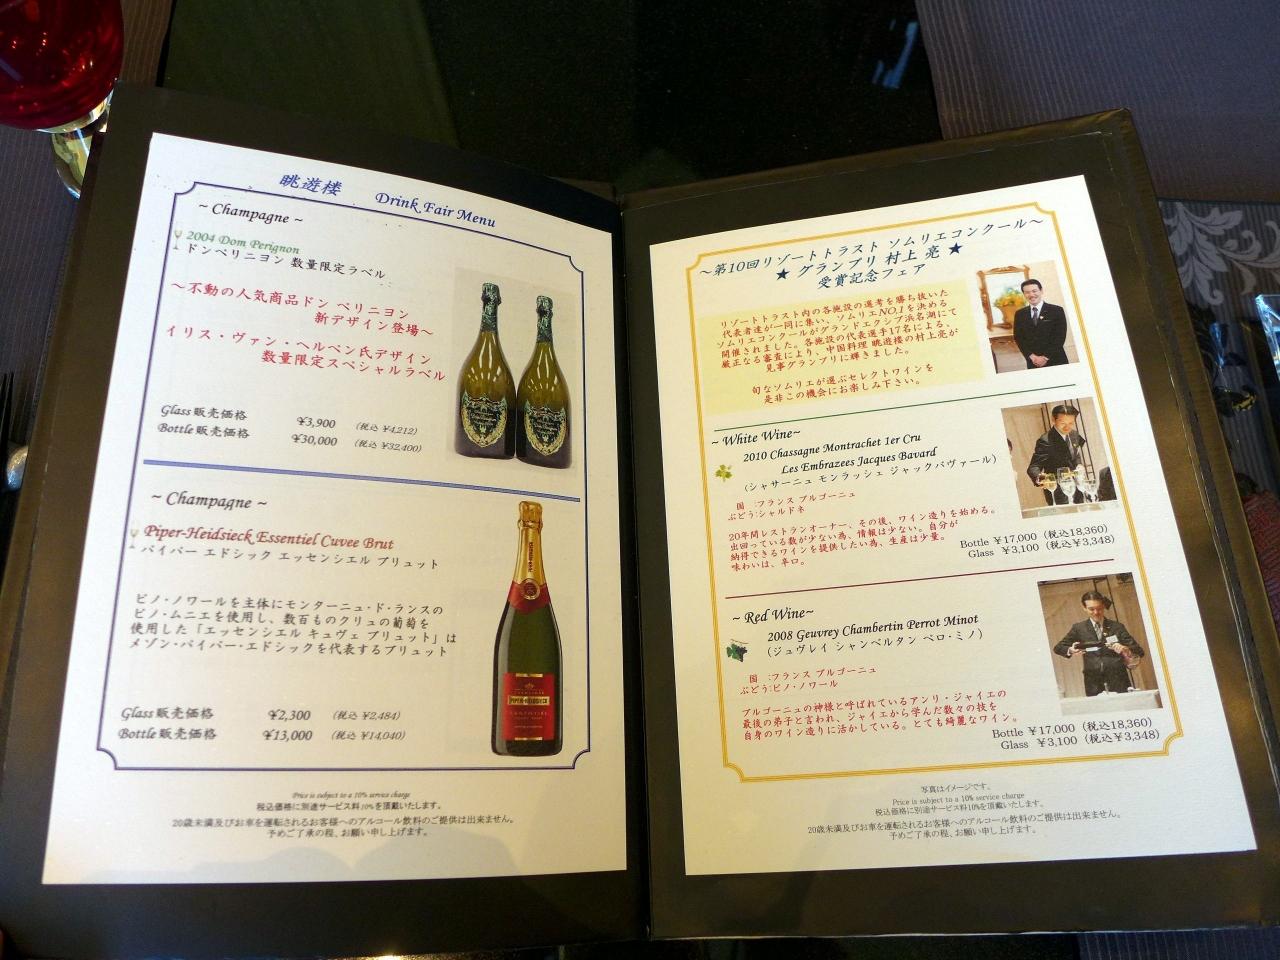 眺遊楼 Drink Fair Menu
~ Champagne ~
2004 Dom Perignon
ドンペリニヨン 数量限定ラベル
～不動の人気商品ドン ペリニヨン
新デザイン登場～
イリス・ヴァン・ヘルペン氏デザイン
数量限定スペシャルラベル
Glass 販売価格 ¥3,900 (税込 ¥4,212)
Bottle 販売価格 ¥30,000 (税込 ¥32,400)
~ Champagne ~
Piper-Heidsieck Essentiel Cuvee Brut
パイパー エドシック エッセンシエル ブリュット
ピノ・ノワールを主体にモンターニュ・ド・ランスの
ピノ・ムニエを使用し、数百ものクリュの葡萄を
使用した「エッセンシエル キュヴェ ブリュット」は
メゾン・パイパー・エドシックを代表するブリュット
PIPER-HEIDSIECK
Glass 販売価格 ¥2,300 (税込 ¥2,484)
Bottle 販売価格 ¥13,000 (税込 ¥14,040)
Price is subject to a 10% service charge
税込価格に別途サービス料10%を頂戴いたします。
20歳未満及びお車を運転されるお客様へのアルコール飲料のご提供は出来ません。
予めご了承の程、お願い申し上げます。
～第10回リゾートトラスト ソムリエコンクール～
★ グランプリ 村上 亮 ★
受賞記念フェア
リゾートトラスト内の各施設の選考を勝ち抜いた
代表者達が一同に集い、ソムリエNO.1を決める
ソムリエコンクールがグランドエクシブ浜名湖にて
開催されました。各施設の代表選手17名による、
厳正なる審査により、中国料理 眺遊楼の村上亮が
見事グランプリに輝きました。
旬なソムリエが選ぶセレクトワインを
是非この機会にお楽しみ下さい。
~ White Wine~
2010 Chassagne Montrachet 1er Cru
Les Embrazees Jacques Bavard
(シャサーニュ モンラッシェ ジャックバヴァール)
国 :フランス ブルゴーニュ
ぶどう:シャルドネ
20年間レストランオーナー、その後、ワイン造りを始める。
出回っている数が少ない為、情報は少ない。自分が
納得できるワインを提供したい為、生産は少量。
味わいは、辛口。
Bottle ¥17,000 (税込18,360)
Glass ¥3,100 (税込¥3,348)
~ Red Wine~
2008 Geuvrey Chambertin Perrot Minot
(ジュヴレイ シャンベルタン ペロ・ミノ)
国 :フランス ブルゴーニュ
ぶどう:ピノ・ノワール
ブルゴーニュの神様と呼ばれているアンリ・ジャイエの
最後の弟子と言われ、ジャイエから学んだ数々の技を
自身のワイン造りに活かしている。とても綺麗なワイン。
Bottle ¥17,000 (税込18,360)
Glass ¥3,100 (税込¥3,348)
写真はイメージです。
Price is subject to a 10% service charge
税込価格に別途サービス料10%を頂戴いたします。
20歳未満及びお車を運転されるお客様へのアルコール飲料のご提供は出来ません。
予めご了承の程、お願い申し上げます。